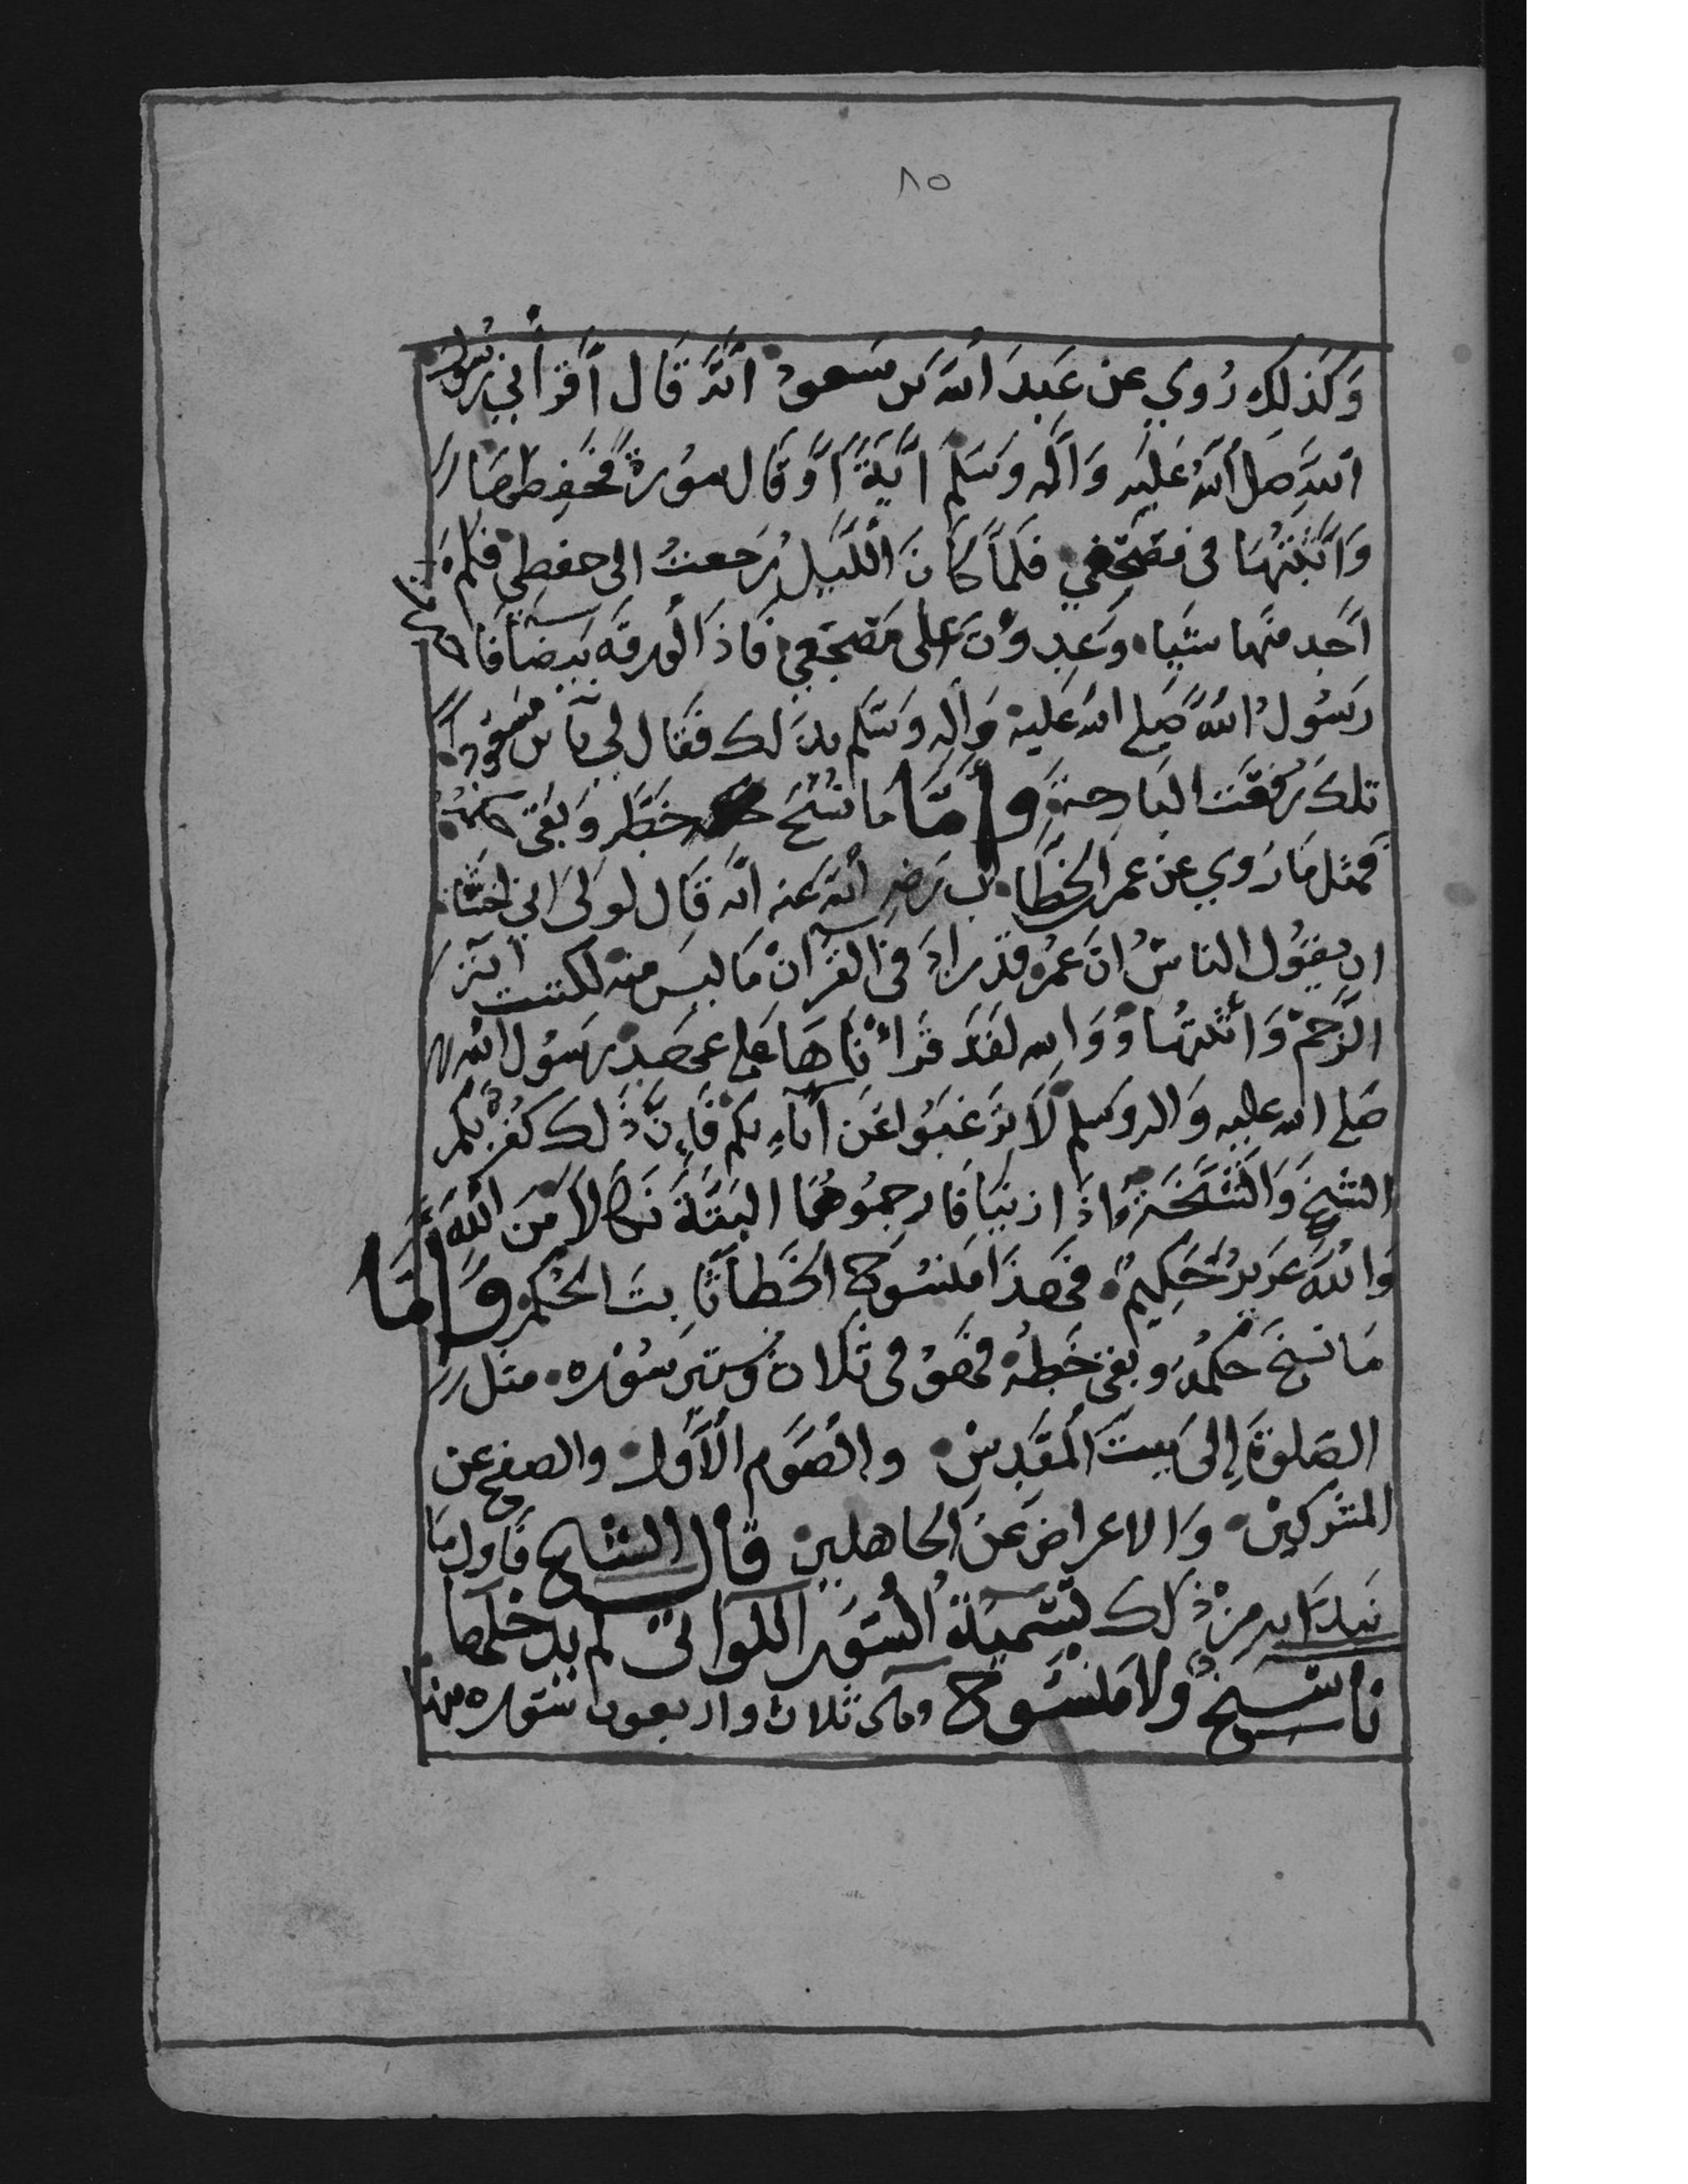 ٨٥
وَكَذلِكَ رُوي عن عَبدَ اللّه بن مسعود انَّهُ قَال أقرأني رسول
اللّهِ صلى اللّهُ عَليه وَالَه وسَلم ايَةً اوَ قال سورة فحفظها
وَاثبتها فى مصحفي فلمَا كَانَ اللّيل رَجعتُ الى حفظي فلم
اجد منها شيا وَغدوت على مصحفي فَاذَا الورقه بيضَا فاخبرت
رَسُول اللّه صَلى اللّه عَليه وَاله وَسَلم بذلك فقال لي يا بن مسعود
تلك رفعت البَارحة وأمّا مَا نسخ خطه وَبقى حكمه
فمثل مَا رَوي عن عمر الخطاب رَضي اللّه عنه انّه قَال لولى انى اخشا
ان يقول الناسُ انَ عمر قد زادَ فى القرانْ مَا ليسَ منه لكتبت اية
الرَجم وَاثبتها ووَالله لقَد قَرائنَاهَا على عهد رسُول اللّه
صلى اللّه عليه وَاله وسلم لاَ ترَغبَوا عَن آباءِ بكم فَإنَّ ذلك كفر بكم
الشيخ وَالشّيخَة اذَا ازنيَا فَارجمُوهُمَا البتَة نَكالاً مّنَ اللّهِ
وَاللّهَ عَزيزٌ حَكِيمٌ فهذَا مَنسُوخ الخَطا ثَابتَ الحكم وَامَّا
مَا نسخ حكمُه وبقى خَطهُ فهوُ فى ثلاث وستين سُوره مثل
الصَلوة إلى بيتَ المقَدِس والصَوم الأوَل والصفح عن
المشركين وَالاعراض عَنَ الجاهلين قال الشيخ فَاول مَا
نبدَا به من ذلك تسَميَة السُوَر اللواتى لم يدخلها
ناسخ وَلا مَنسُوخ وهى ثلاث واربعون سَوره منها